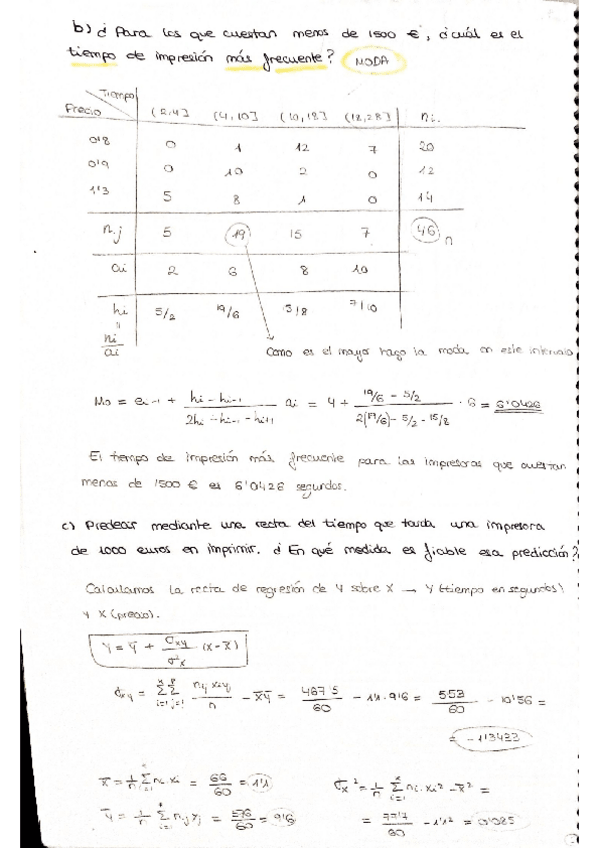 b) ¿ Para los que cuestan menos de 1500 €, ¿cuál es el
tiempo de impresión más frecuente? MODA
Tiempo
Precio (2,4] (4,10] (10,18] (18,28] ni.
0'8 0 1 12 7 20
0'9 0 10 2 0 12
1'3 5 8 1 0 14
n.j 5 19 15 7 46 n
ai 2 6 8 10
hi 5/2 19/6 15/8 7/10
ni/ai
Como es el mayor hago la moda en este intervalo
Mo = ei-1 + (hi - hi-1)/(2hi - hi-1 - hi+1) ai = 4 + (19/6 - 5/2)/(2(19/6) - 5/2 - 15/8) · 6 = 6'0426
El tiempo de impresión más frecuente para las impresoras que cuestan
menos de 1500 € es 6'0426 segundos.
c) Predecir mediante una recta del tiempo que tarda una impresora
de 1000 euros en imprimir. ¿En qué medida es fiable esa predicción?
Calculamos la recta de regresión de Y sobre X → Y (tiempo en segundos)
y X (precio).
Y = ȳ + σxy/σ²x (x - x̄)
σxy = Σ Σ nij xi yj / n - x̄ȳ = /60 - 1'1 · 9'6 = 553/60 - 10'56 =
= -1'3433
x̄ = 1/n Σ ni. xi = 66/60 = 1'1 σx² = 1/n Σ ni. xi² - x̄² =
ȳ = 1/n Σ n.j yj = 576/60 = 9'6 = 77'7/60 - 1'1² = 0'085